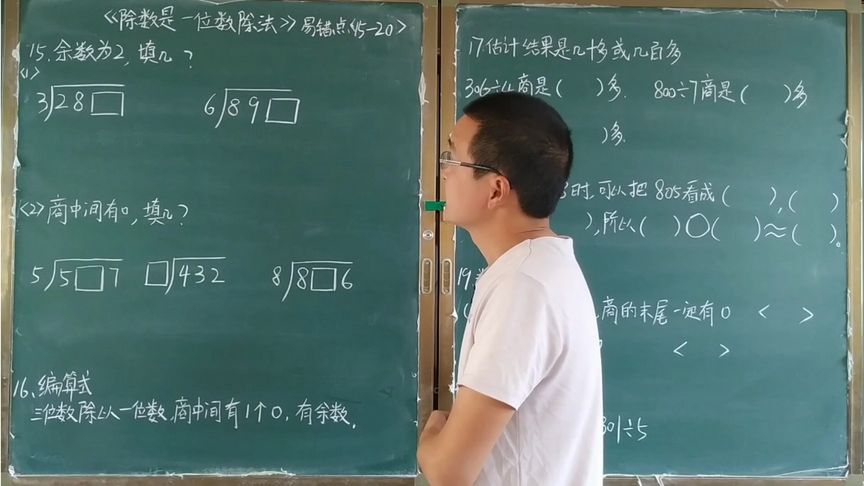 《除数是一位数除法》易错点(15-20)
15.余数为2,填几?
<1>
3 28□ 6 89□
<2>商中间有0,填几?
5 5□7 □ 432 8 8□6
16、编算式
三位数除以一位数,商中间有1个0,有余数。
17估计结果是几十多或几百多
306÷4商是( )多. 800÷7商是( )多
)多.
时,可以把805看成( ),( )
),所以( )○( )≈( )。
19.
商的末尾一定有0 < >
< >
301÷5